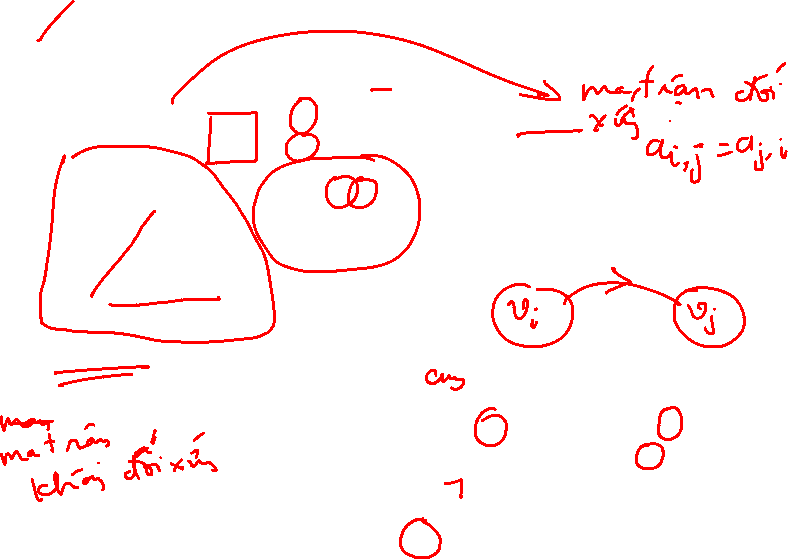 ma trận đối
xứng
a i,j = a j,i
v i v j
cung
ma trận
không đối xứng